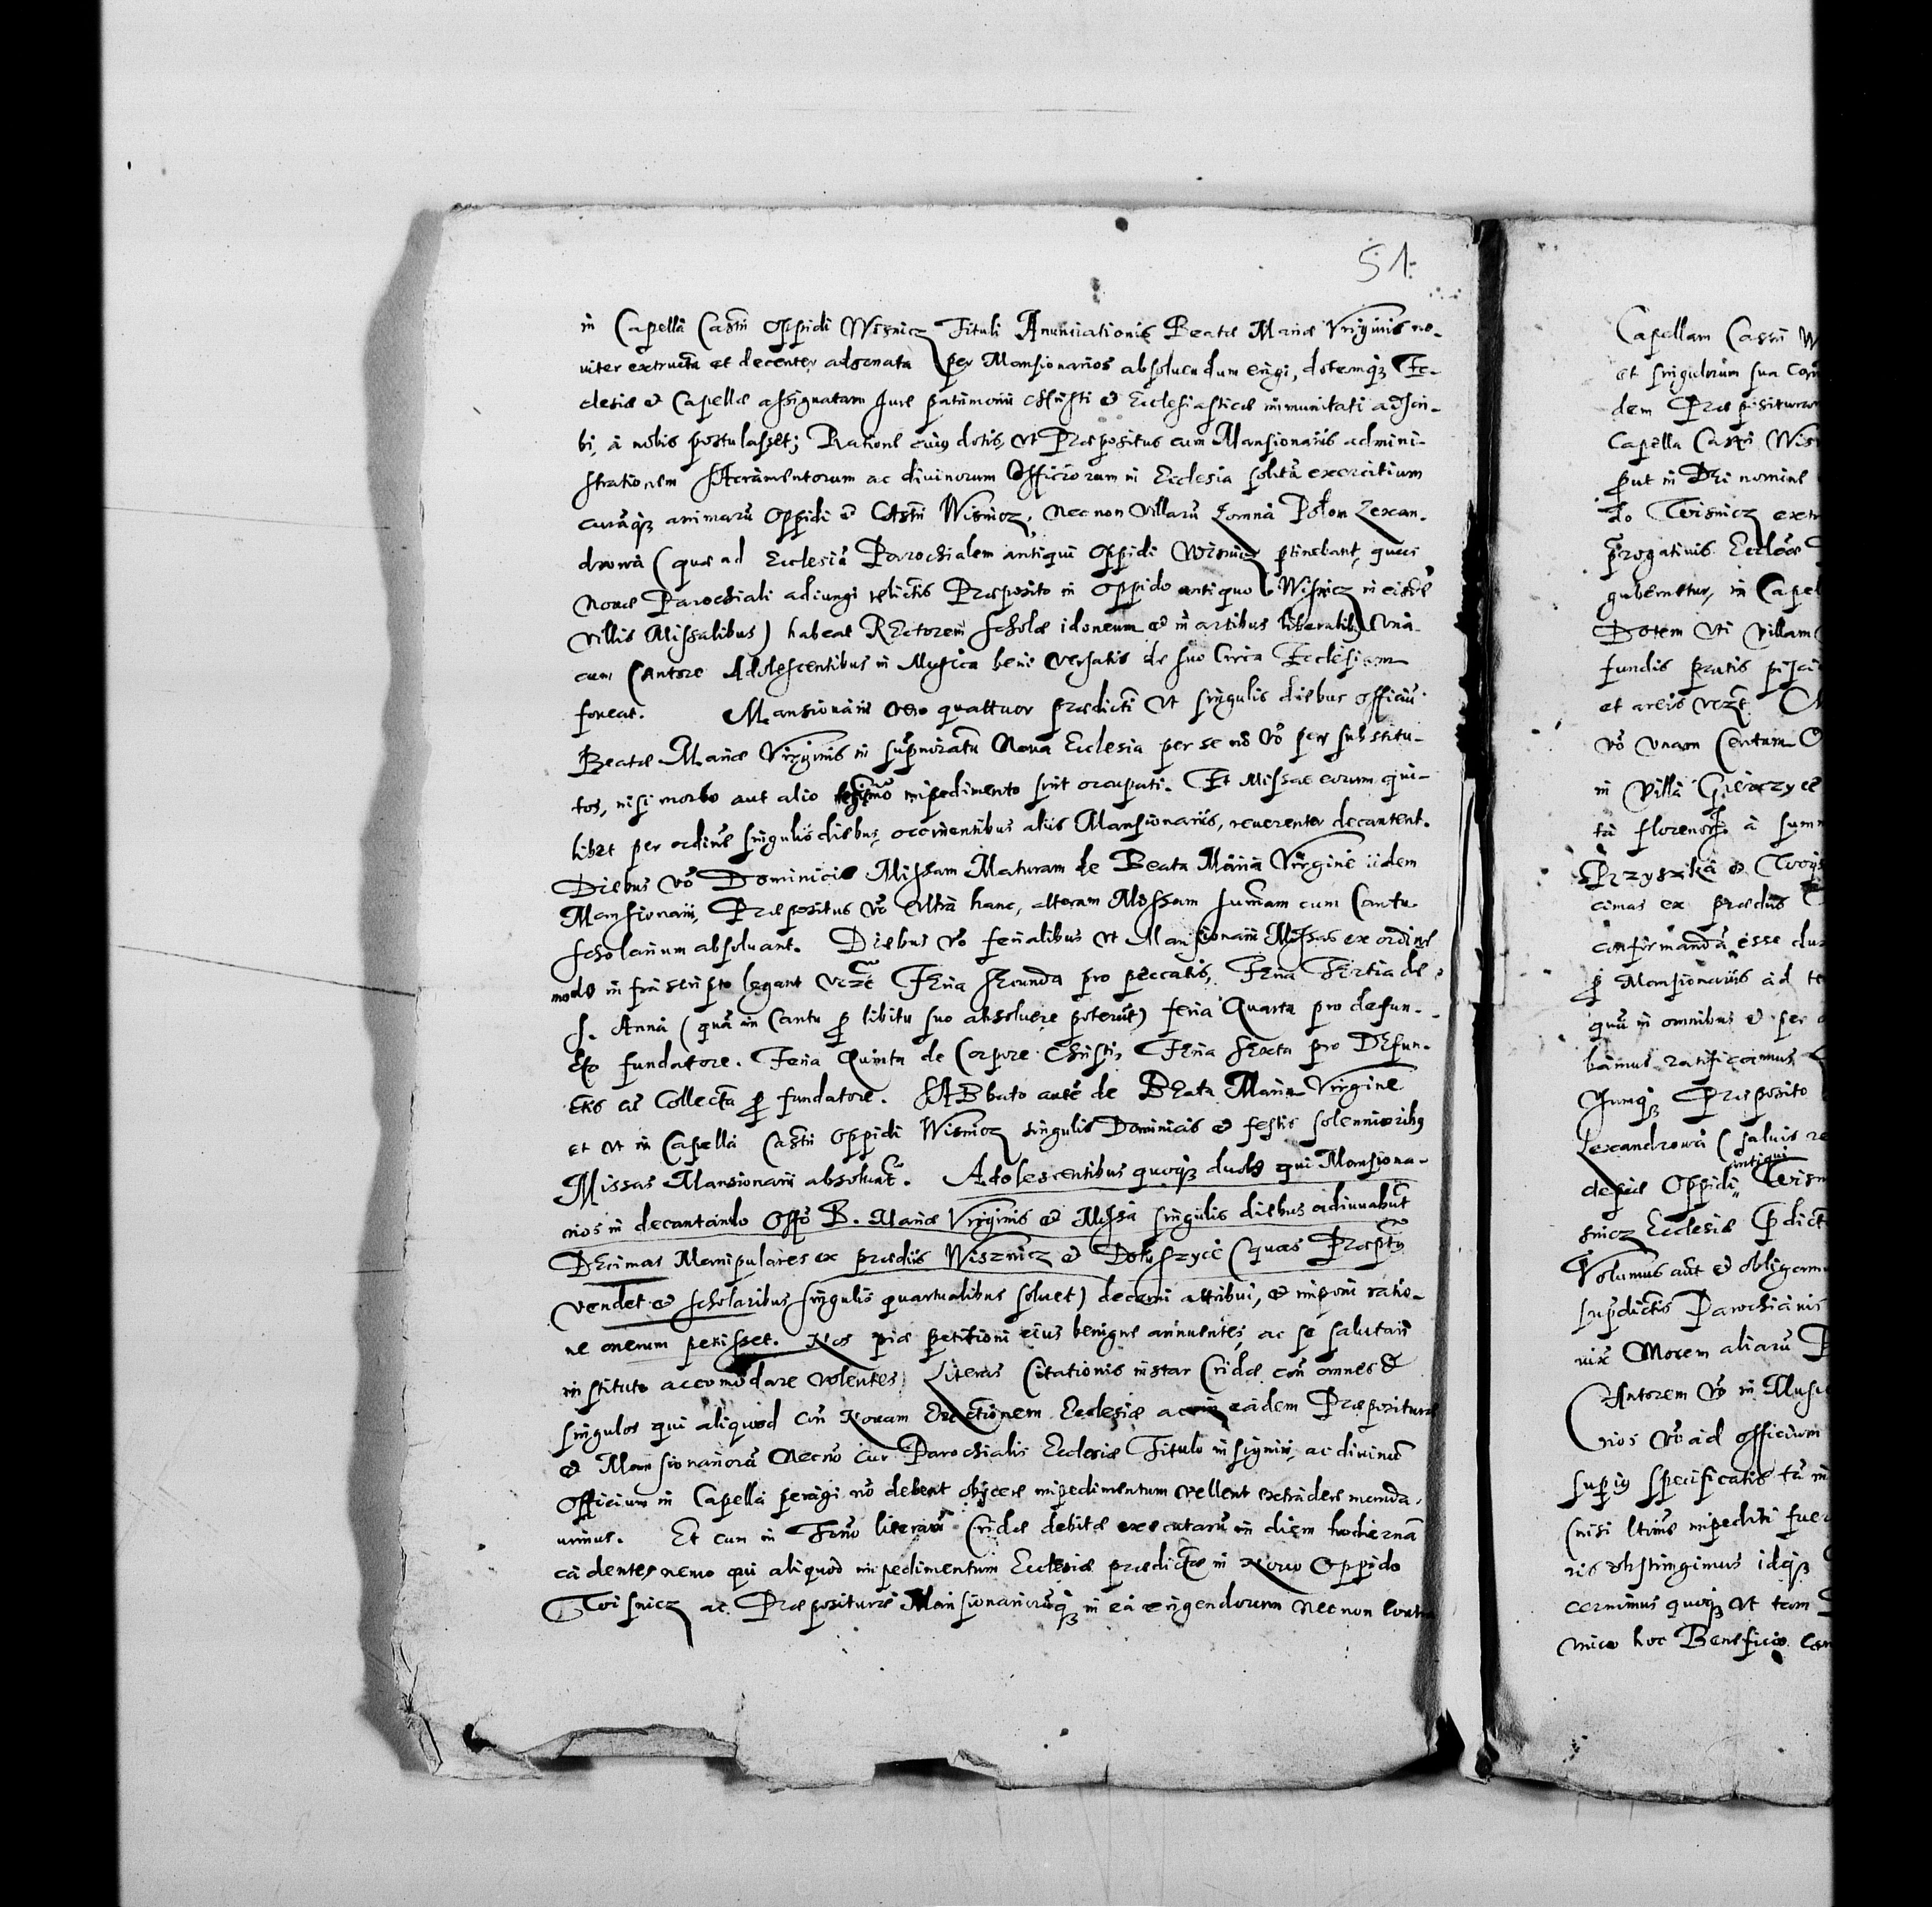 51.
in Capella Castri Oppidi Wisnicz Tituli Anunciationis Beatæ Mariæ Virginis no-
viter extructa et decenter adornata per Mansionarios absoluendum erigi, dotemq₃ Ec-
clesiæ et Capellæ assignatam Jure patrimonii Christi et Ecclesiasticæ immunitati adscri-
bi, à nobis postulasset; Ratione cuius dotis, vt Præpositus cum Mansionariis admini-
strationem sacramentorum ac divinorum Officiorum in Ecclesia solita exercitium
curāq₃ animarū Oppidi et Castri Wisnicz, nec non villarū Łomna Połom Lexan-
drowa (quæ ad Ecclesiā Parochialem antiqui Oppidi Wisnicz ptinebant,
Novæ Parochiali adiungi relictis Præposito in Oppido antiquo Wisnicz in eisdē
villis Missalibus) habeat Rectorem scholæ idoneum et in artibus liberalib₉ Vna
cum Cantore Adolescentibus in Musica bene versatis de suo Circa Ecclesiam
foueat. Mansionarii vero quattuor prædicti vt singulis diebus officiū
Beatæ Mariæ Virginis in supmirata Noua Ecclesia per se nō vō per substitu-
tos, nisi morbo aut alio impedimento sint occupati. Et Missas eorum qui-
libet per ordinē singulis diebus, occinentibus aliis Mansionariis, reuerenter decantent.
Diebus vō Dominicis Missam Maturam de Beata Maria Virgine iidem
Mansionarii, Præpositus vō vltra hanc, alteram Missam summam cum Cantu
scholarium absoluant. Diebus vō ferialibus vt Mansionarii Missas ex ordine
modo infra scripto legant vczt Feria secunda pro peccatis, Feria Tertia de
S. Anna (quā in Cantu p libitu suo absoluere poterūt) feria Quarta pro defun-
cto fundatore. Feria Quinta de Corpore Christi, Feria sexta pro Defun-
ctis cū Collecta p fundatore. SABbato autē de Beata Maria Virgine
et vt in Capella Castri Oppidi Wisnicz singulis Dominicis et festis solennioribus
Missas Mansionarii absoluāt. Adolescentibus quoq₃ duob₉ qui Mansiona-
rios in decantando Offō B. Mariæ Virginis et Missa singulis diebus adiuuabūt
Decimas Manipulares ex prædiis Wisznicz et Doluszyce (quas Præptus
vendet et scholaribus singulis quartualibus soluet) decerni attribui, et imponi ratio-
ne onerum petiisset. Nos piæ petitioni eius benigne annuentes, ac se salutari
instituto accomodare volentes, Literas Citationis instar Cridæ con omnes et
singulos qui aliquod con Nouam Erectionem Ecclesiæ ac in eadem Præposituræ
et Mansionariorū Necnō Cur Parochialis Ecclesiæ Titulo insigniri, ac divinū
officium in Capella peragi nō debeat objicere impedimentum vellent extradere manda-
uimus. Et cum in Termo literarū Cridæ debitæ executarū in diem hodiernā
cadentes nemo qui aliquod impedimentum Ecclesiæ prædictæ in Nouo Oppido
Wisnicz ac Præposituræ Mansionariorūq₃ in ea erigendorum Necnon contra
Capellam Castri
et singulorum sua
dem Præposituram
Capella Castri
put in Dei nomine
do Wisnicz
progatiuis Ecclæ
gubernetur, in
Dotem vti villam
fundis pratis
et areis vczt
vō vnam Centum
in villa Gierczyce
ta florenos à
Przyszka et
cimas ex prædiis
confirmandā esse
p Mansionariis ad
quā in omnibus et per
bamus ratificamus
Præposito
Lexandrowa (saluis
antiqui
desiæ Oppidi
snicz Ecclesiæ
Volumus aūt et
supdictis Parochianis
Morem aliarū
Cantorem vō in
rios vō ad officium
supius specificatis
(nisi impediti
ris obstringimus idq₃
cernimus quoq₃ vt tam
vnico hoc Beneficio